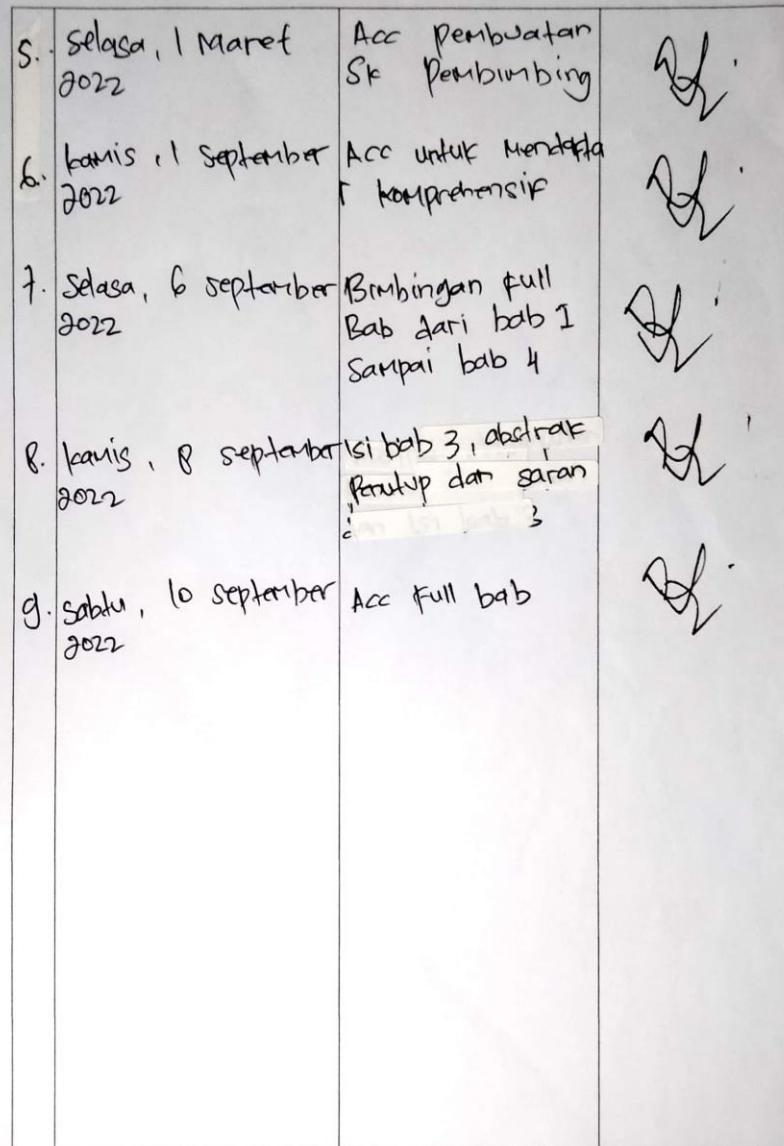 5. Selasa, 1 Maret
2022
Acc Pembuatan
SK Pembimbing
6. kamis, 1 September
2022
Acc untuk Mendafta
r komprehensif
7. Selasa, 6 september
2022
Bimbingan full
Bab dari bab I
Sampai bab 4
8. kamis, 8 september
2022
isi bab 3, abstrak
Penutup dan saran
9. sabtu, 10 september
2022
Acc Full bab